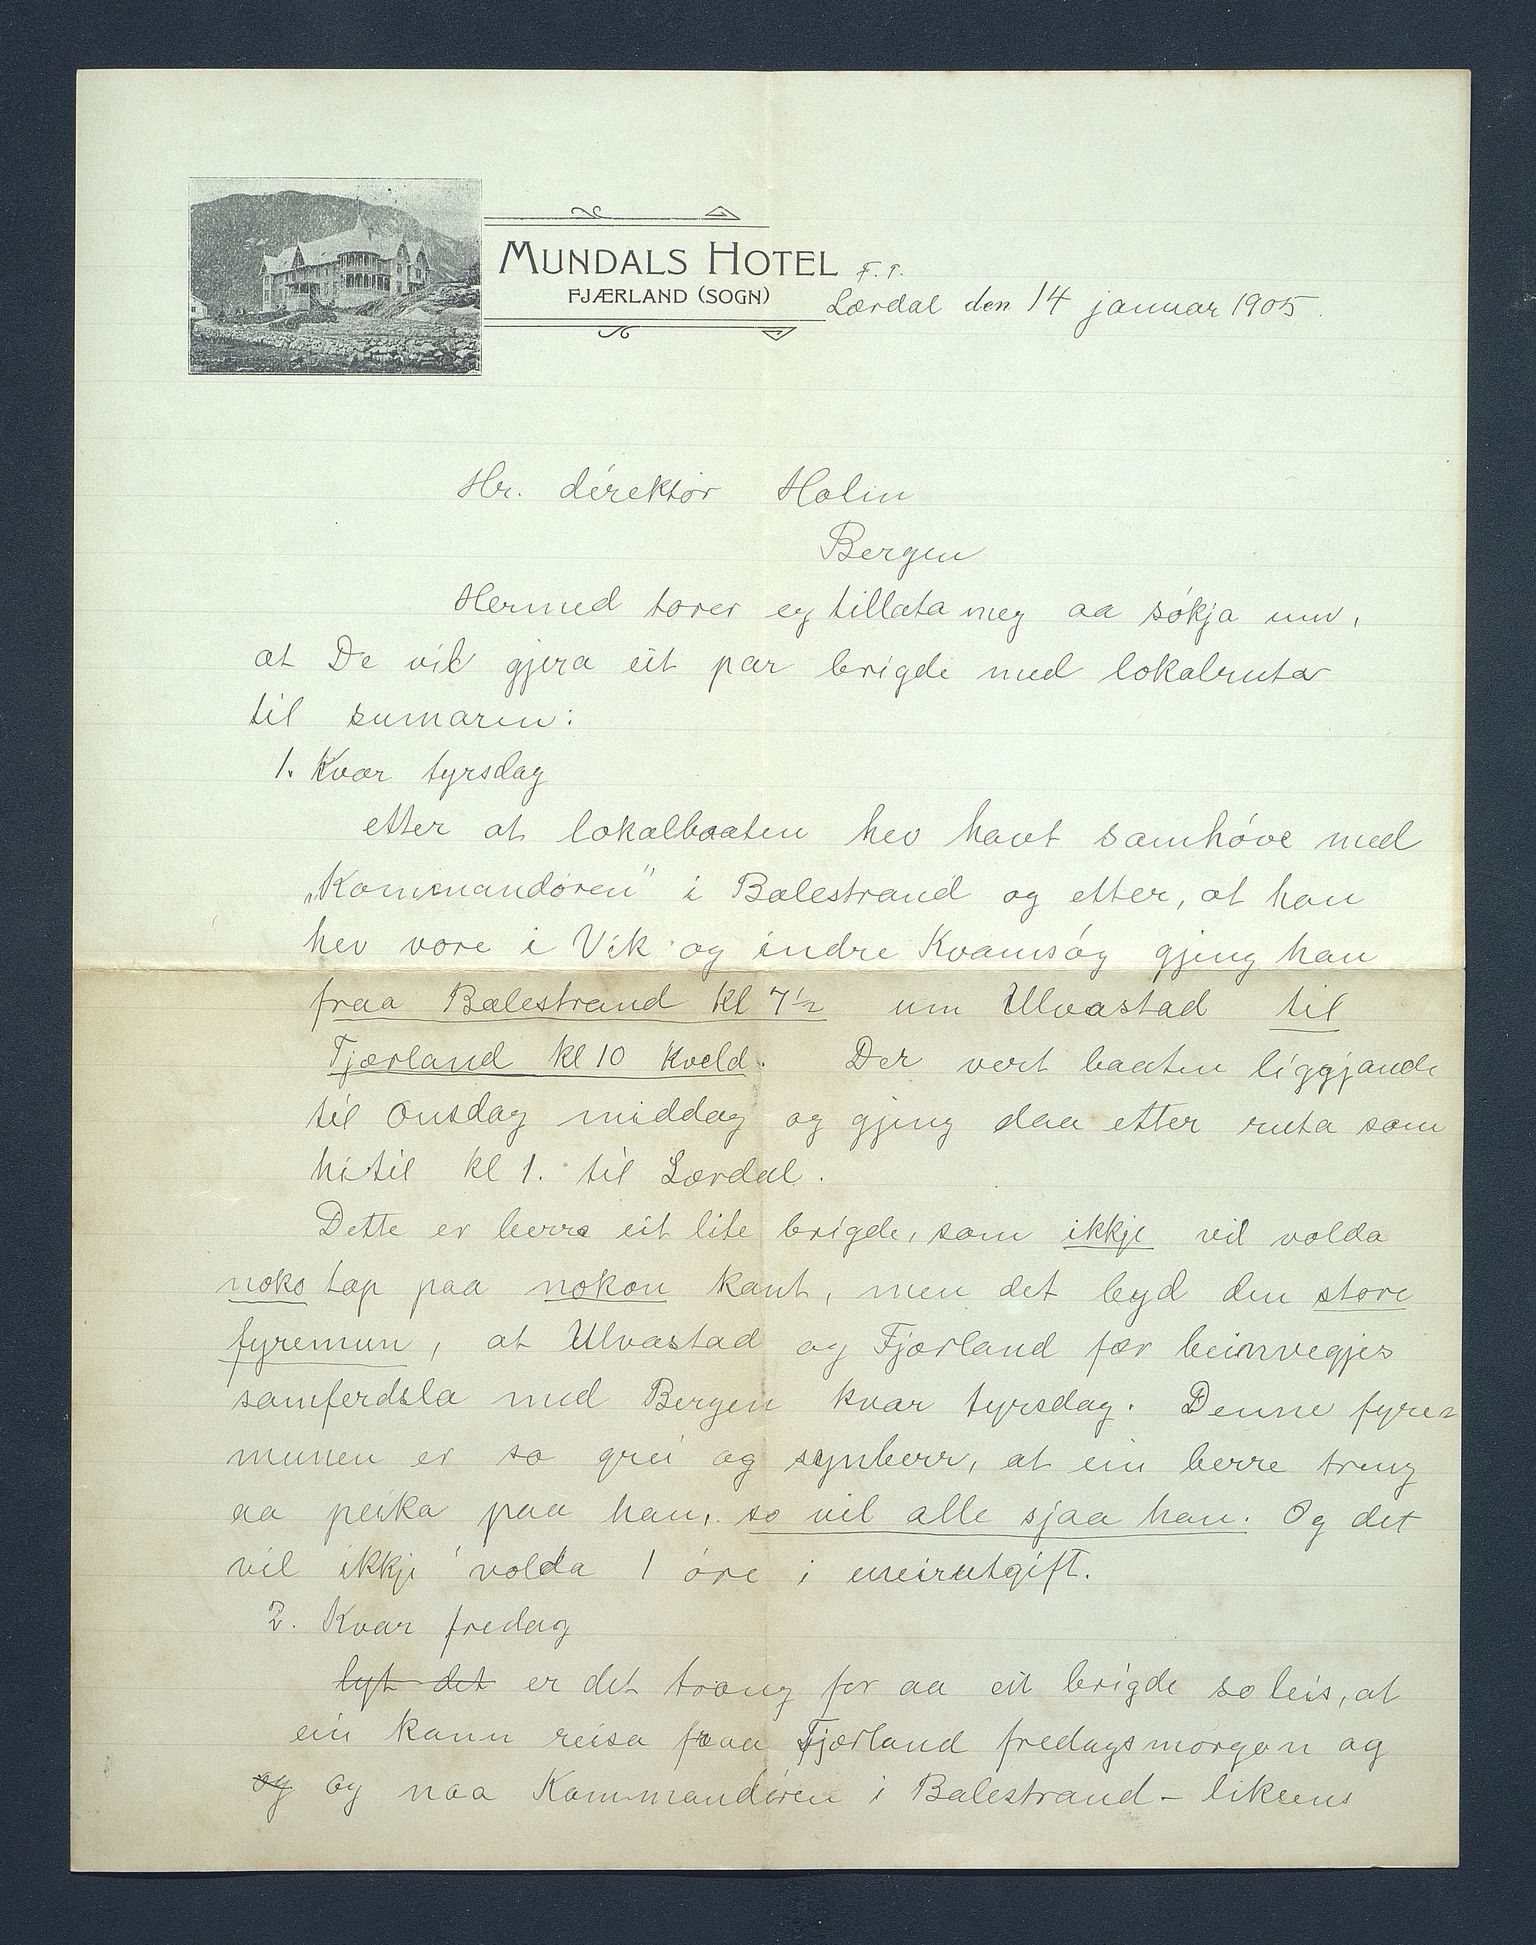 MUNDALS HOTEL
FJÆRLAND (SOGN)
F. t.
Lærdal den 14 januar 1905.
Hr. direktør Holm
Bergen
Hermed torer eg tillata meg aa søkja um,
at De vil gjera eit par brigde med lokalruta
til sumaren:
1. Kvar tyrsdag
etter at lokalbaaten hev havt samhøve med
„Kommandøren" i Balestrand og etter, at han
hev vore i Vik og indre Kvamsøy gjeng han
fraa Balestrand kl 7½ um Ulvastad til
Fjærland kl 10 kveld. Der vert baaten liggjande
til Onsdag middag og gjeng daa etter ruta som
hitil kl 1. til Lærdal.
Dette er berre eit lite brigde, som ikkje vil volda
noko tap paa nokon kant, men det byd den store
fyremun, at Ulvastad og Fjærland fær beinvegjes
samferdsla med Bergen kvar tyrsdag. Denne fyre-
munen er so grei og synberr, at ein berre treng
aa peika paa han, so vil alle sjaa han. Og det
vil ikkje volda 1 øre i meirutgift.
2. Kvar fredag
lyt det er det trong for aa eit brigde so leis, at
ein kann reisa fraa Fjærland fredagsmorgon og
og og naa Kommandøren i Balestrand - likeens